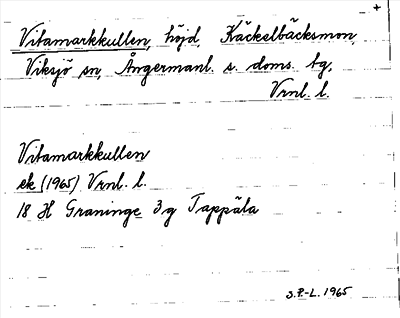 +
Vitamarkkullen, höjd, Käckelbäcksmon,
Viksjö sn, Ångermanl. s. doms. tg,
Vrnl. l.
Vitamarkkullen
ek (1965) Vrnl. l.
18 H Graninge 3 g Tappäla
S.P.-L. 1965